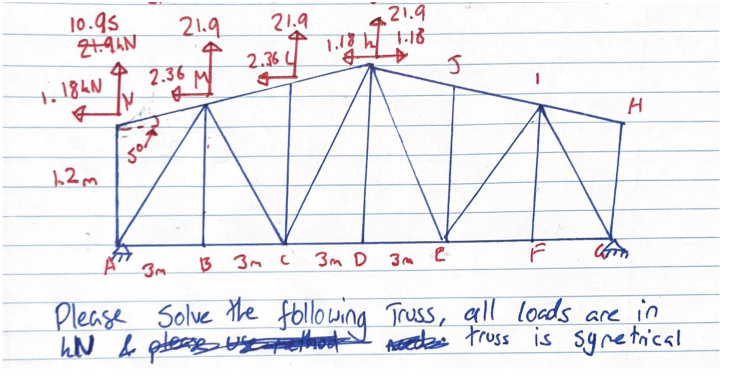 10.95 21.9 21.9 21.9
21.9kN
1.18kN 2.36 M 2.36 L 1.18 k 1.18
N J I H
5°
1.2m
A 3m B 3m C 3m D 3m E F G
Please Solve the following Truss, all loads are in
kN & please use method truss is symetrical